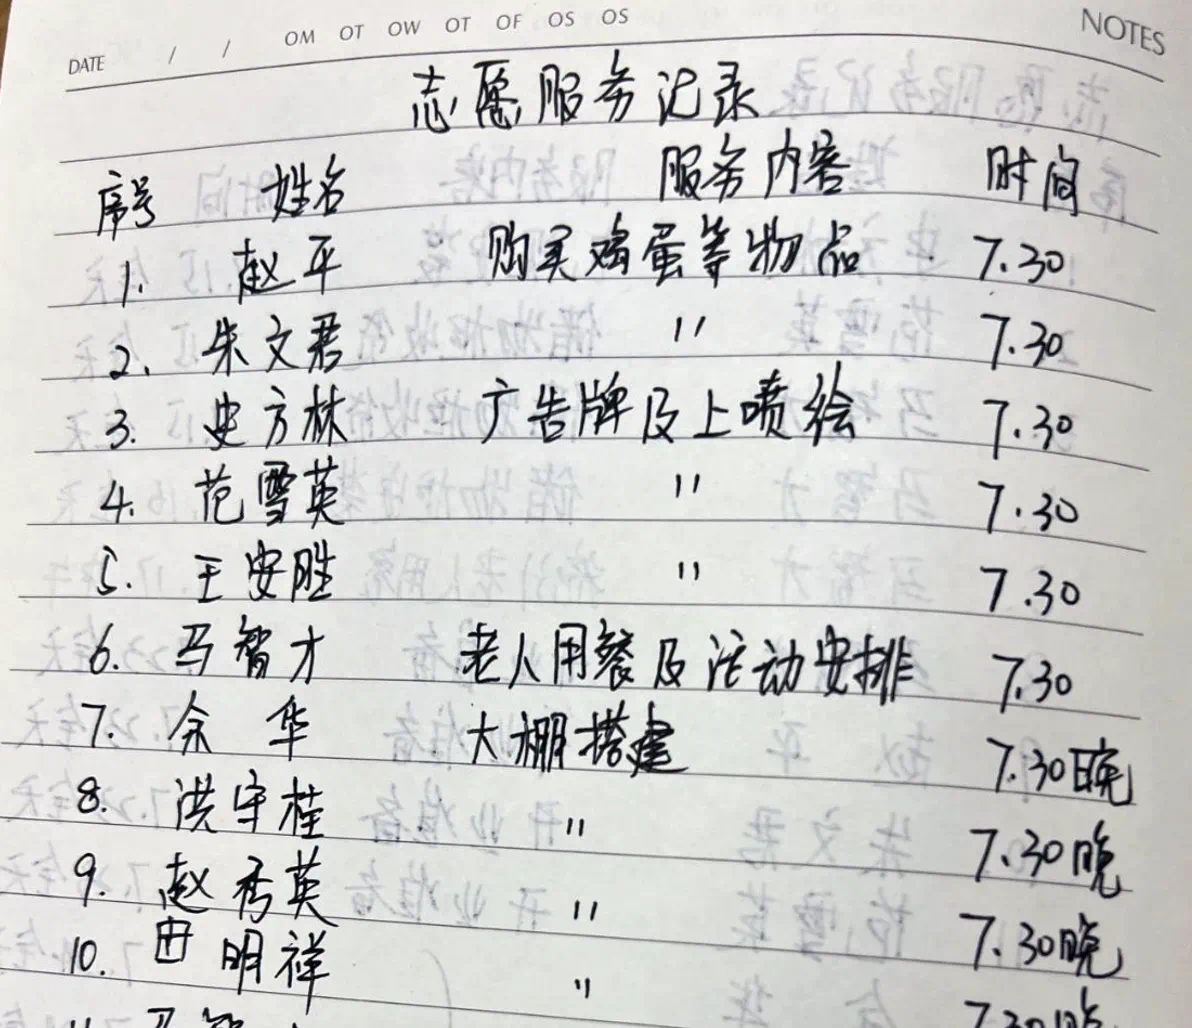 DATE / / OM OT OW OT OF OS OS NOTES
志愿服务记录
序号 姓名 服务内容 时间
1. 赵平 购买鸡蛋等物品 7.30
2. 朱文君 〃 7.30
3. 史方林 广告牌及上喷绘 7.30
4. 范雪英 〃 7.30
5. 王安胜 〃 7.30
6. 马智才 老人用餐及活动安排 7.30
7. 余华 大棚搭建 7.30晚
8. 洪守桂 〃 7.30晚
9. 赵秀英 〃 7.30晚
10. 田明祥 〃 7.30晚